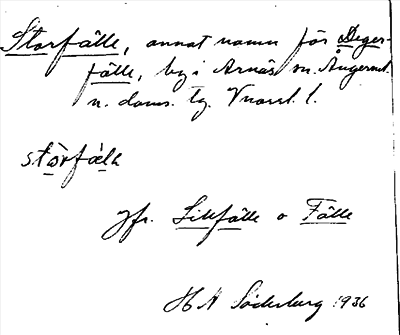 Storfälle, annat namn för Deger-
fälle, by i Arnäs sn. Ångerml.
n. doms. tg. Vnorrl. l.
stòrfálα
Jfr. Lillfälle o Fälle
H A Söderberg 1936